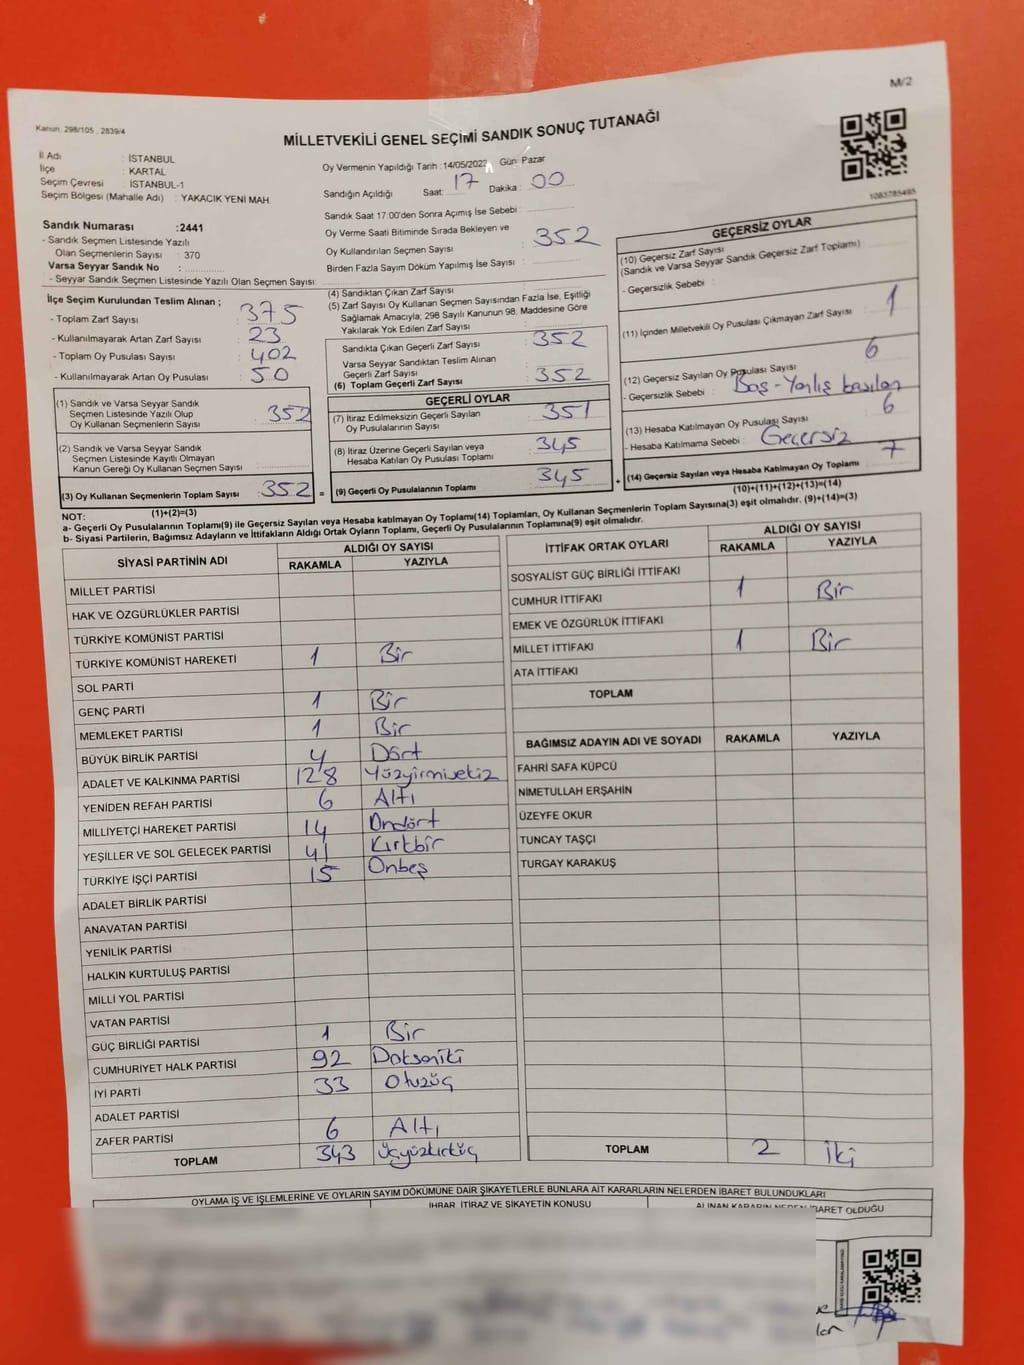 M/2
Kanun: 298/105 , 2839/4
MİLLETVEKİLİ GENEL SEÇİMİ SANDIK SONUÇ TUTANAĞI
İl Adı : İSTANBUL
İlçe : KARTAL
Seçim Çevresi : İSTANBUL-1
Seçim Bölgesi (Mahalle Adı) : YAKACIK YENİ MAH.
Oy Vermenin Yapıldığı Tarih :14/05/2023 Gün: Pazar
Sandığın Açıldığı Saat: 17 Dakika : 00
Sandık Saat 17:00'den Sonra Açımış İse Sebebi :
Oy Verme Saati Bitiminde Sırada Bekleyen ve
Oy Kullandırılan Seçmen Sayısı : 352
Birden Fazla Sayım Döküm Yapılmış İse Sayısı :
1083785495
Sandık Numarası :2441
- Sandık Seçmen Listesinde Yazılı
Olan Seçmenlerin Sayısı : 370
Varsa Seyyar Sandık No :
- Seyyar Sandık Seçmen Listesinde Yazılı Olan Seçmen Sayısı:
İlçe Seçim Kurulundan Teslim Alınan ;
- Toplam Zarf Sayısı : 375
- Kullanılmayarak Artan Zarf Sayısı : 23
- Toplam Oy Pusulası Sayısı : 402
- Kullanılmayarak Artan Oy Pusulası : 50
(1) Sandık ve Varsa Seyyar Sandık
Seçmen Listesinde Yazılı Olup
Oy Kullanan Seçmenlerin Sayısı : 352
(2) Sandık ve Varsa Seyyar Sandık
Seçmen Listesinde Kayıtlı Olmayan
Kanun Gereği Oy Kullanan Seçmen Sayısı :
(3) Oy Kullanan Seçmenlerin Toplam Sayısı : 352 =
(1)+(2)=(3)
(4) Sandıktan Çıkan Zarf Sayısı :
(5) Zarf Sayısı Oy Kullanan Seçmen Sayısından Fazla İse, Eşitliği
Sağlamak Amacıyla; 298 Sayılı Kanunun 98. Maddesine Göre
Yakılarak Yok Edilen Zarf Sayısı :
Sandıkta Çıkan Geçerli Zarf Sayısı : 352
Varsa Seyyar Sandıktan Teslim Alınan
Geçerli Zarf Sayısı :
(6) Toplam Geçerli Zarf Sayısı : 352
GEÇERLİ OYLAR
(7) İtiraz Edilmeksizin Geçerli Sayılan
Oy Pusulalarının Sayısı : 351
(8) İtiraz Üzerine Geçerli Sayılan veya
Hesaba Katılan Oy Pusulası Toplamı : 345
(9) Geçerli Oy Pusulalarının Toplamı : 345 +
GEÇERSİZ OYLAR
(10) Geçersiz Zarf Sayısı
(Sandık ve Varsa Seyyar Sandık Geçersiz Zarf Toplamı) :
- Geçersizlik Sebebi :
(11) İçinden Milletvekili Oy Pusulası Çıkmayan Zarf Sayısı : 1
(12) Geçersiz Sayılan Oy Pusulası Sayısı : 6
- Geçersizlik Sebebi : Boş - Yanlış basılan
(13) Hesaba Katılmayan Oy Pusulası Sayısı : 6
- Hesaba Katılmama Sebebi : Geçersiz
(14) Geçersiz Sayılan veya Hesaba Katılmayan Oy Toplamı : 7
(10)+(11)+(12)+(13)=(14)
NOT:
a- Geçerli Oy Pusulalarının Toplamı(9) ile Geçersiz Sayılan veya Hesaba katılmayan Oy Toplamı(14) Toplamları, Oy Kullanan Seçmenlerin Toplam Sayısına(3) eşit olmalıdır. (9)+(14)=(3)
b- Siyasi Partilerin, Bağımsız Adayların ve İttifakların Aldığı Ortak Oyların Toplamı, Geçerli Oy Pusulalarının Toplamına(9) eşit olmalıdır.
SİYASİ PARTİNİN ADI ALDIĞI OY SAYISI
RAKAMLA YAZIYLA
MİLLET PARTİSİ
HAK VE ÖZGÜRLÜKLER PARTİSİ
TÜRKİYE KOMÜNİST PARTİSİ
TÜRKİYE KOMÜNİST HAREKETİ 1 Bir
SOL PARTİ
GENÇ PARTİ 1 Bir
MEMLEKET PARTİSİ 1 Bir
BÜYÜK BİRLİK PARTİSİ 4 Dört
ADALET VE KALKINMA PARTİSİ 128 Yüzyirmisekiz
YENİDEN REFAH PARTİSİ 6 Altı
MİLLİYETÇİ HAREKET PARTİSİ 14 Ondört
YEŞİLLER VE SOL GELECEK PARTİSİ 41 Kırkbir
TÜRKİYE İŞÇİ PARTİSİ 15 Onbeş
ADALET BİRLİK PARTİSİ
ANAVATAN PARTİSİ
YENİLİK PARTİSİ
HALKIN KURTULUŞ PARTİSİ
MİLLİ YOL PARTİSİ
VATAN PARTİSİ
GÜÇ BİRLİĞİ PARTİSİ 1 Bir
CUMHURİYET HALK PARTİSİ 92 Doksaniki
İYİ PARTİ 33 Otuzüç
ADALET PARTİSİ
ZAFER PARTİSİ 6 Altı
TOPLAM 343 Üçyüzkırküç
İTTİFAK ORTAK OYLARI ALDIĞI OY SAYISI
RAKAMLA YAZIYLA
SOSYALİST GÜÇ BİRLİĞİ İTTİFAKI
CUMHUR İTTİFAKI 1 Bir
EMEK VE ÖZGÜRLÜK İTTİFAKI
MİLLET İTTİFAKI 1 Bir
ATA İTTİFAKI
TOPLAM
BAĞIMSIZ ADAYIN ADI VE SOYADI RAKAMLA YAZIYLA
FAHRİ SAFA KÜPCÜ
NİMETULLAH ERŞAHİN
ÜZEYFE OKUR
TUNCAY TAŞÇI
TURGAY KARAKUŞ
TOPLAM 2 İki
OYLAMA İŞ VE İŞLEMLERİNE VE OYLARIN SAYIM DÖKÜMÜNE DAİR ŞİKAYETLERLE BUNLARA AİT KARARLARIN NELERDEN İBARET BULUNDUKLARI
İHBAR, İTİRAZ VE ŞİKAYETİN KONUSU
ALINAN KARARIN NEDEN İBARET OLDUĞU